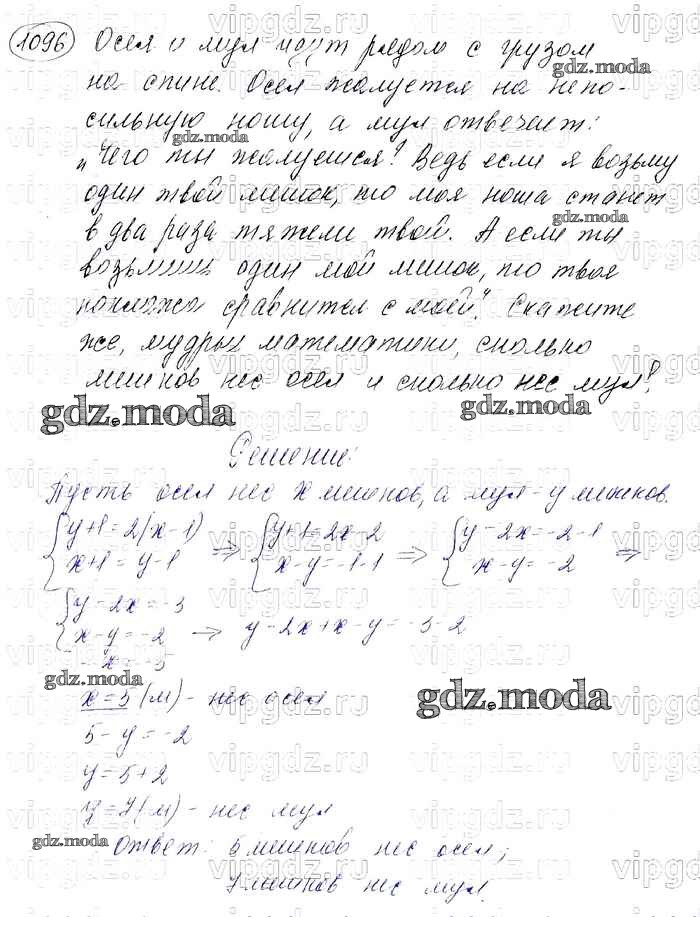 1096 Осел и мул идут рядом с грузом
на спине. Осел жалуется на непо-
сильную ношу, а мул отвечает:
„Чего ты жалуешься? Ведь если я возьму
один твой мешок, то моя ноша станет
в два раза тяжели твой. А если ты
возьмешь один мой мешок, то твоя
поклажа сравнится с моей“. Скажите
же, мудрый математики, сколько
мешков нес осел и сколько нес мул?
Решение:
Пусть осел нес x мешков, а мул - y мешков.
{y+1=2(x-1) {y+1=2x-2 {y-2x=-2-1
{x+1=y-1 => {x-y=-1-1 => {x-y=-2 =>
{y-2x=-3
{x-y=-2 -> y-2x+x-y=-3-2
-x=-5
x=5 (м) - нес осел
5-y=-2
y=5+2
y=7(м) - нес мул
Ответ: 5 мешков нес осел;
7 мешков нес мул.
gdz.moda
gdz.moda
gdz.moda
gdz.moda
gdz.moda
gdz.moda
gdz.moda
gdz.moda
vipgdz.ru